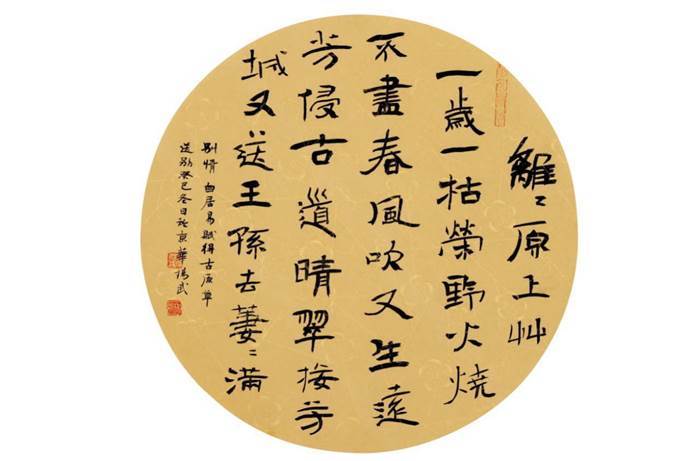 離〻原上艸
一歲一枯榮野火烧
不盡春風吹又生遠
芳侵古道晴翠接荒
城又送王孫去萋〻滿
別情 白居易賦得古原草
送別癸巳冬日於京華